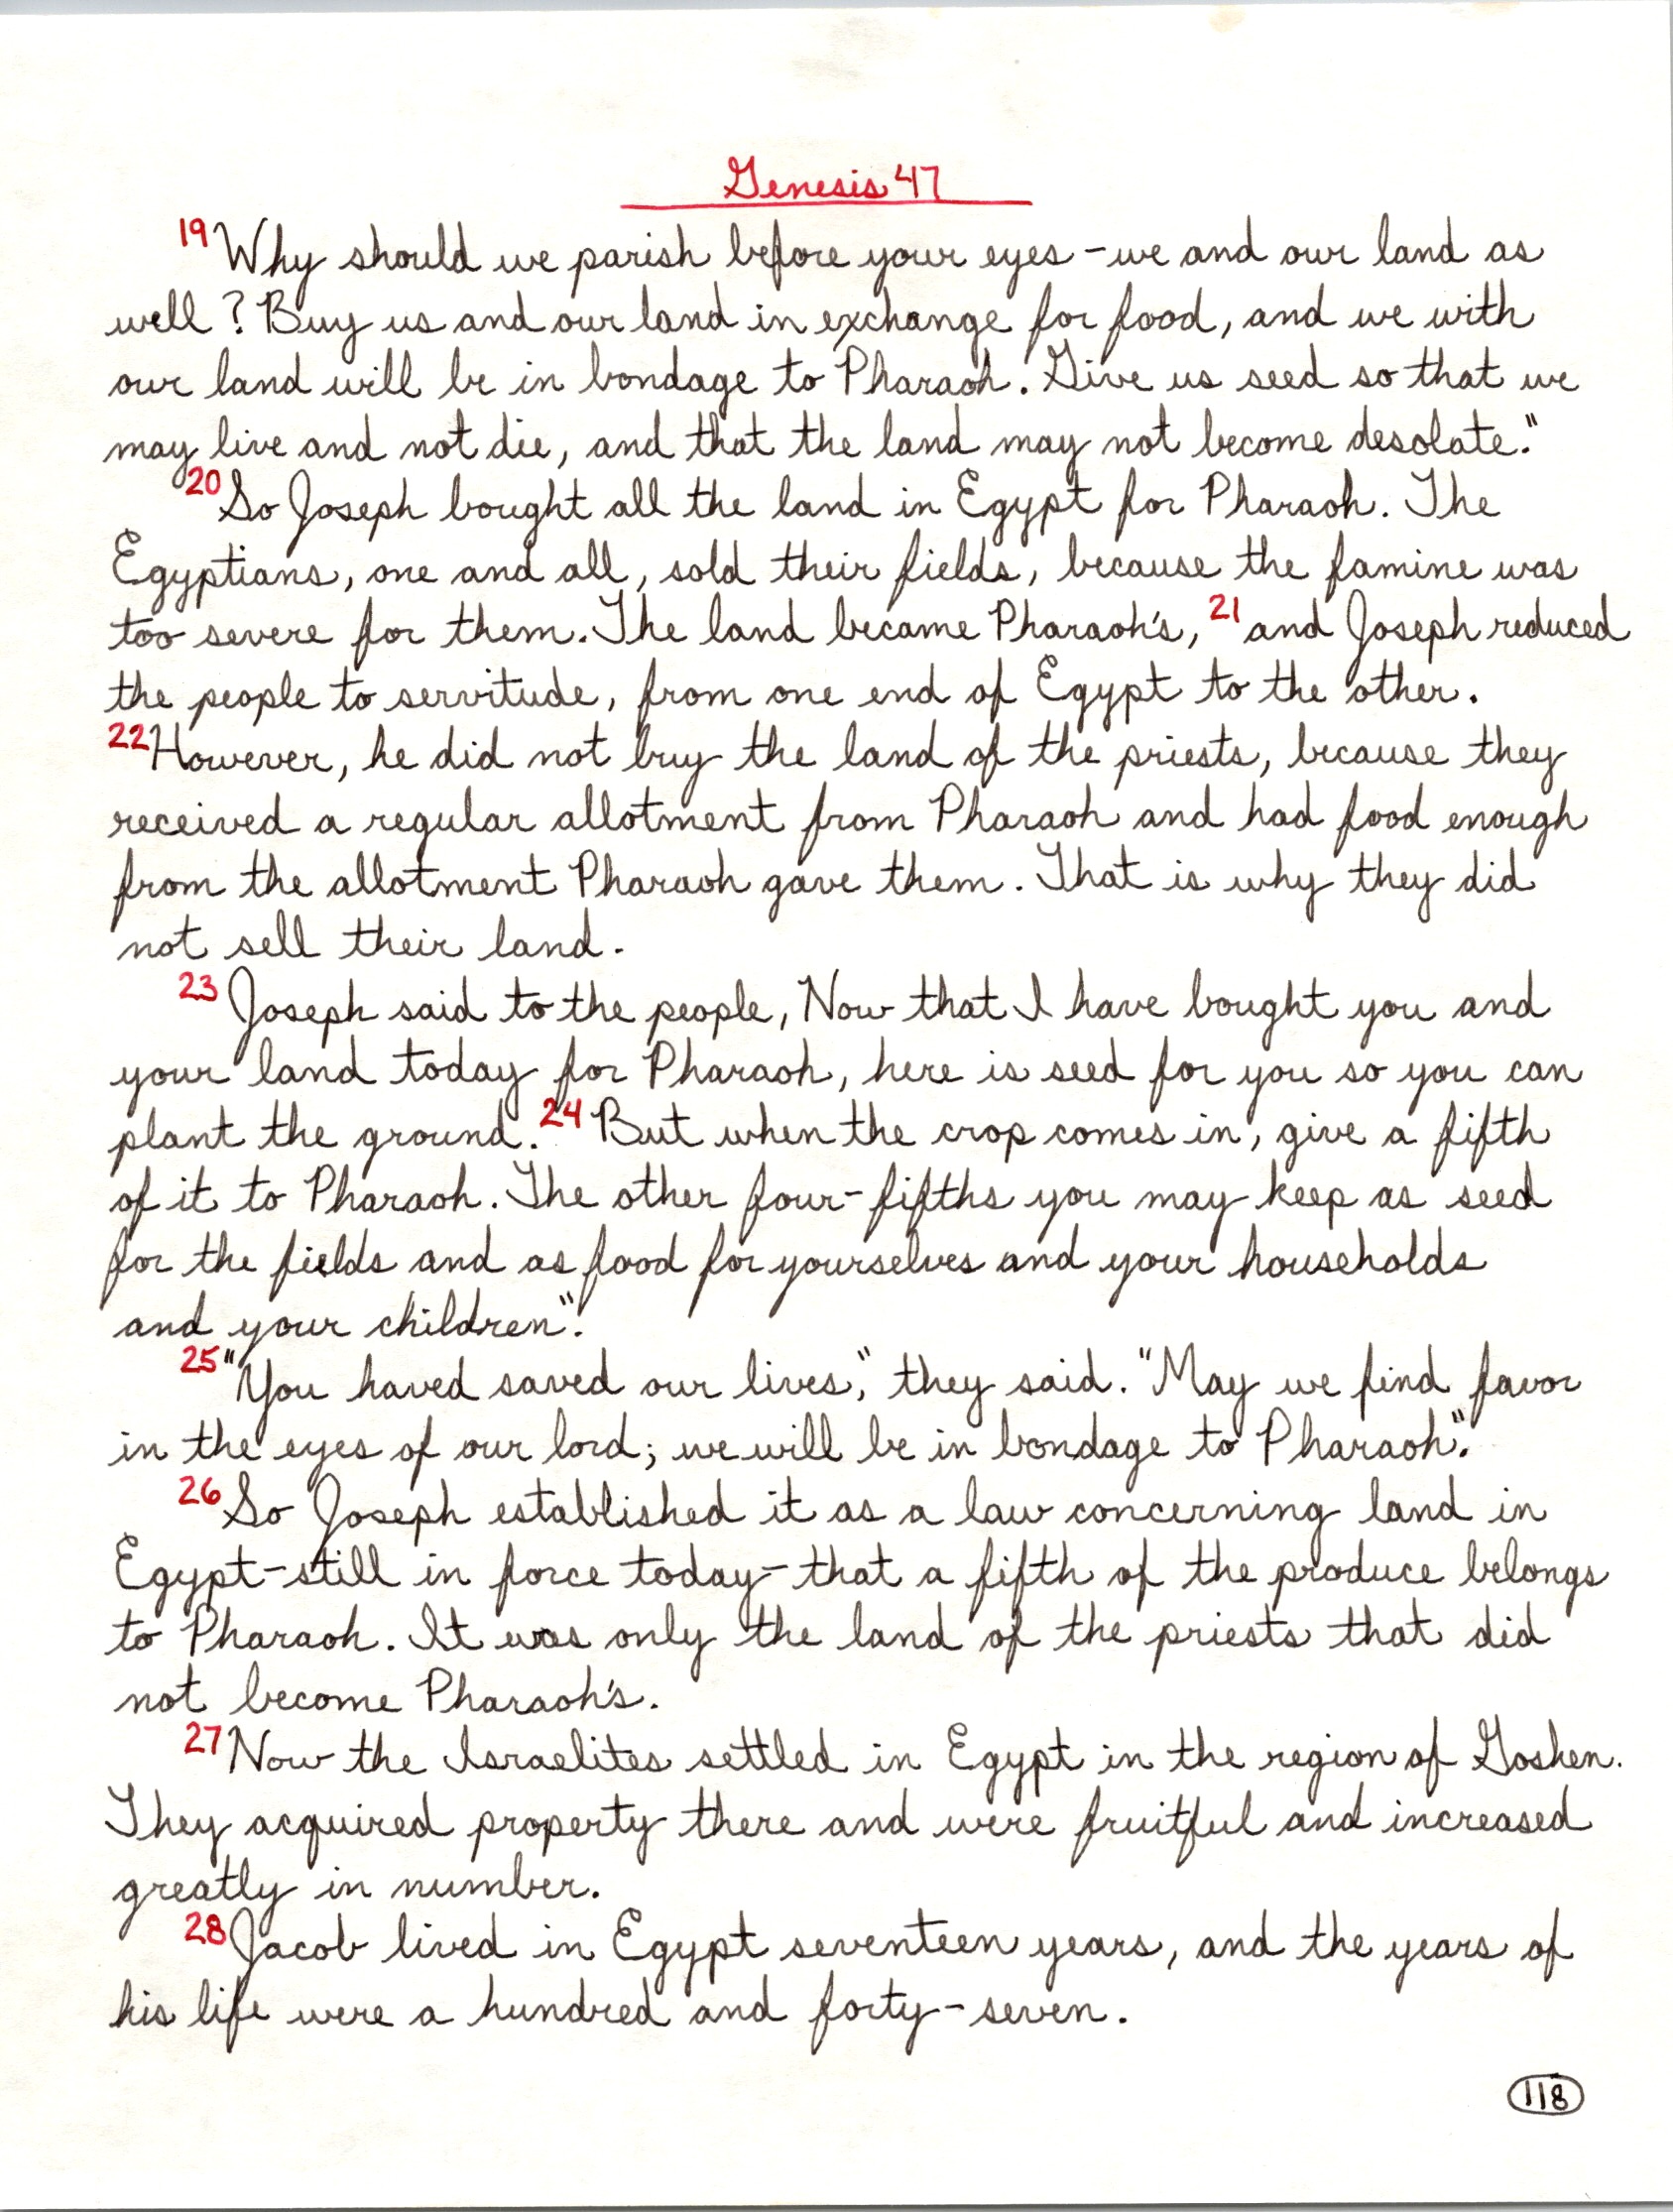 Genesis 47
19 Why should we parish before your eyes - we and our land as
well? Buy us and our land in exchange for food, and we with
our land will be in bondage to Pharaoh. Give us seed so that we
may live and not die, and that the land may not become desolate."
20 So Joseph bought all the land in Egypt for Pharaoh. The
Egyptians, one and all, sold their fields, because the famine was
too severe for them. The land became Pharaoh's, 21 and Joseph reduced
the people to servitude, from one end of Egypt to the other.
22 However, he did not buy the land of the priests, because they
received a regular allotment from Pharaoh and had food enough
from the allotment Pharaoh gave them. That is why they did
not sell their land.
23 Joseph said to the people, Now that I have bought you and
your land today for Pharaoh, here is seed for you so you can
plant the ground. 24 But when the crop comes in, give a fifth
of it to Pharaoh. The other four-fifths you may keep as seed
for the fields and as food for yourselves and your households
and your children."
25 "You haved saved our lives," they said. "May we find favor
in the eyes of our lord; we will be in bondage to Pharaoh."
26 So Joseph established it as a law concerning land in
Egypt-still in force today-that a fifth of the produce belongs
to Pharaoh. It was only the land of the priests that did
not become Pharaoh's.
27 Now the Israelites settled in Egypt in the region of Goshen.
They acquired property there and were fruitful and increased
greatly in number.
28 Jacob lived in Egypt seventeen years, and the years of
his life were a hundred and forty-seven.
118